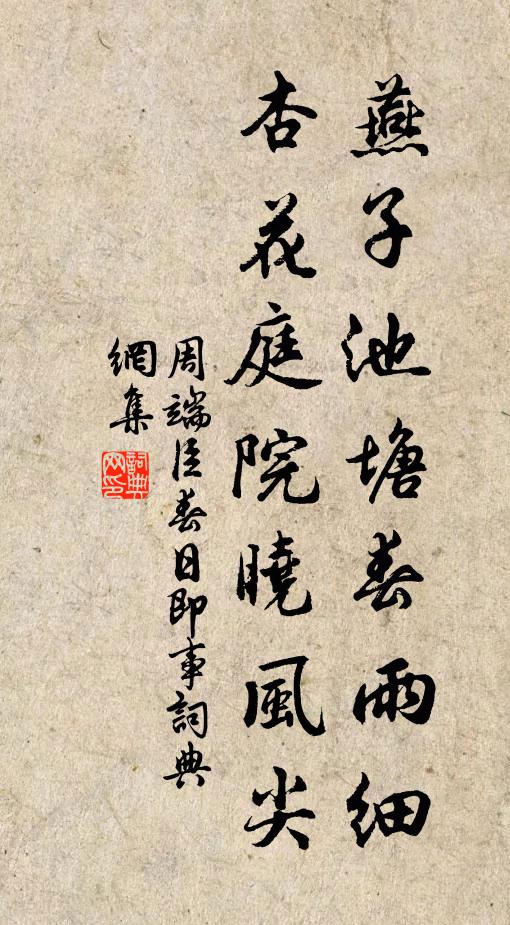 燕子池塘春雨細
杏花庭院曉風尖
周端臣春日即事詞典
網集
詞典網印